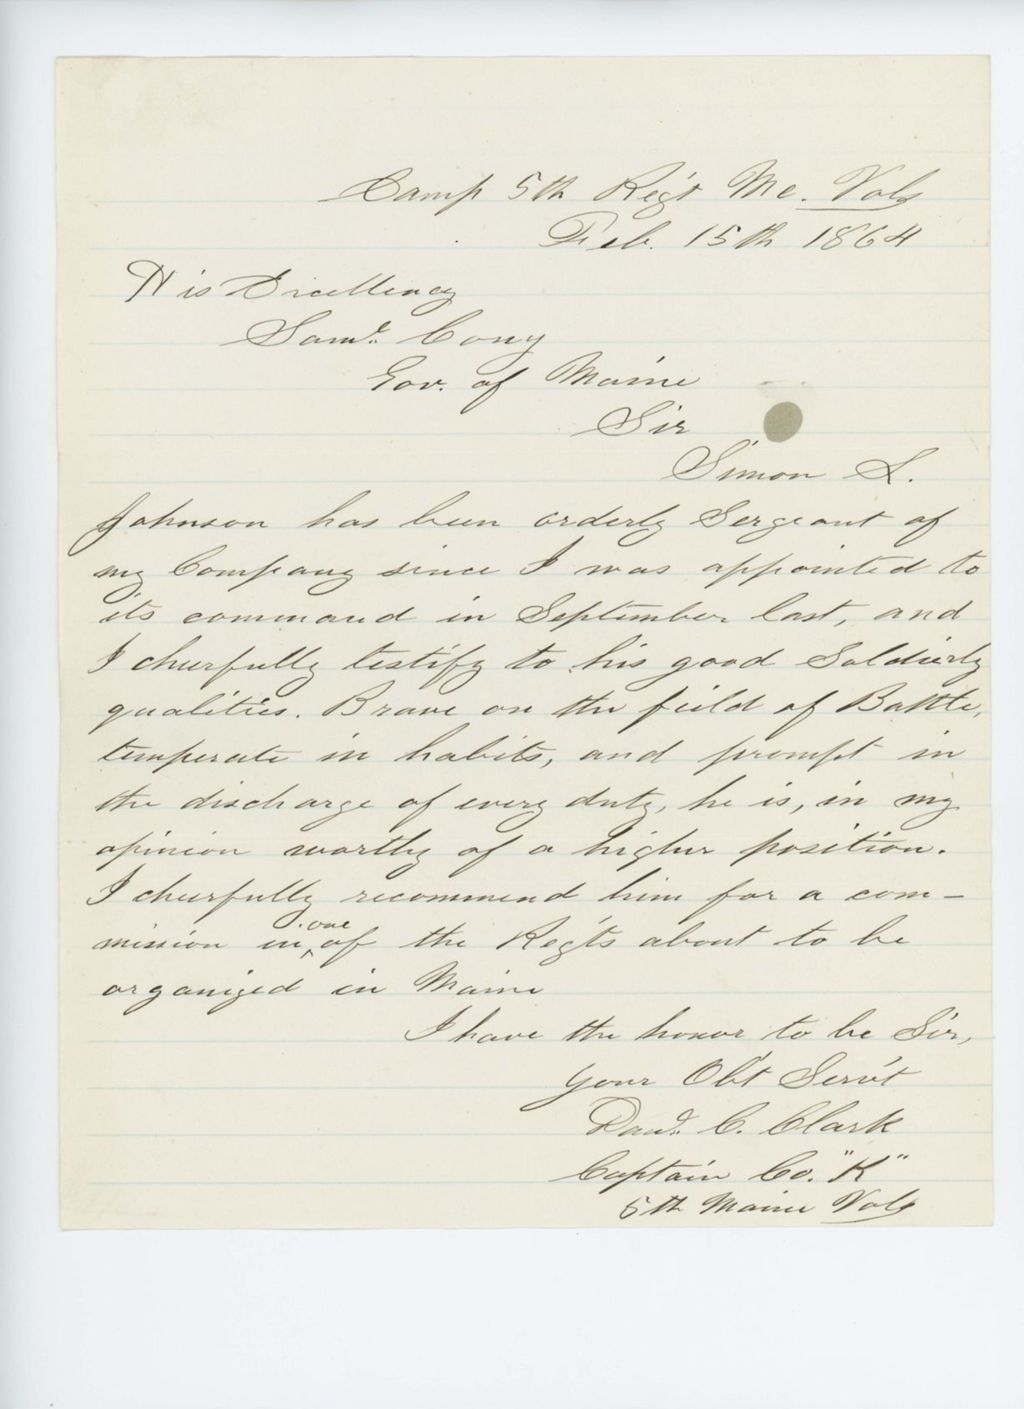 Camp 5th Reg't Me. Vols
Feb. 15th 1864
His Excellency
Saml. Cony
Gov. of Maine
Sir
Simon L.
Johnson has been orderly Sergeant of
my Company since I was appointed to
its command in September last, and
I cheerfully testify to his good Soldierly
qualities. Brave on the field of Battle,
temperate in habits, and prompt in
the discharge of every duty, he is, in my
opinion worthy of a higher position.
I cheerfully recommend him for a com-
mission in one of the Reg'ts about to be
organized in Maine
I have the honor to be Sir,
your Ob't Serv't
Danl. C. Clark
Captain Co. "K"
5th Maine Vols